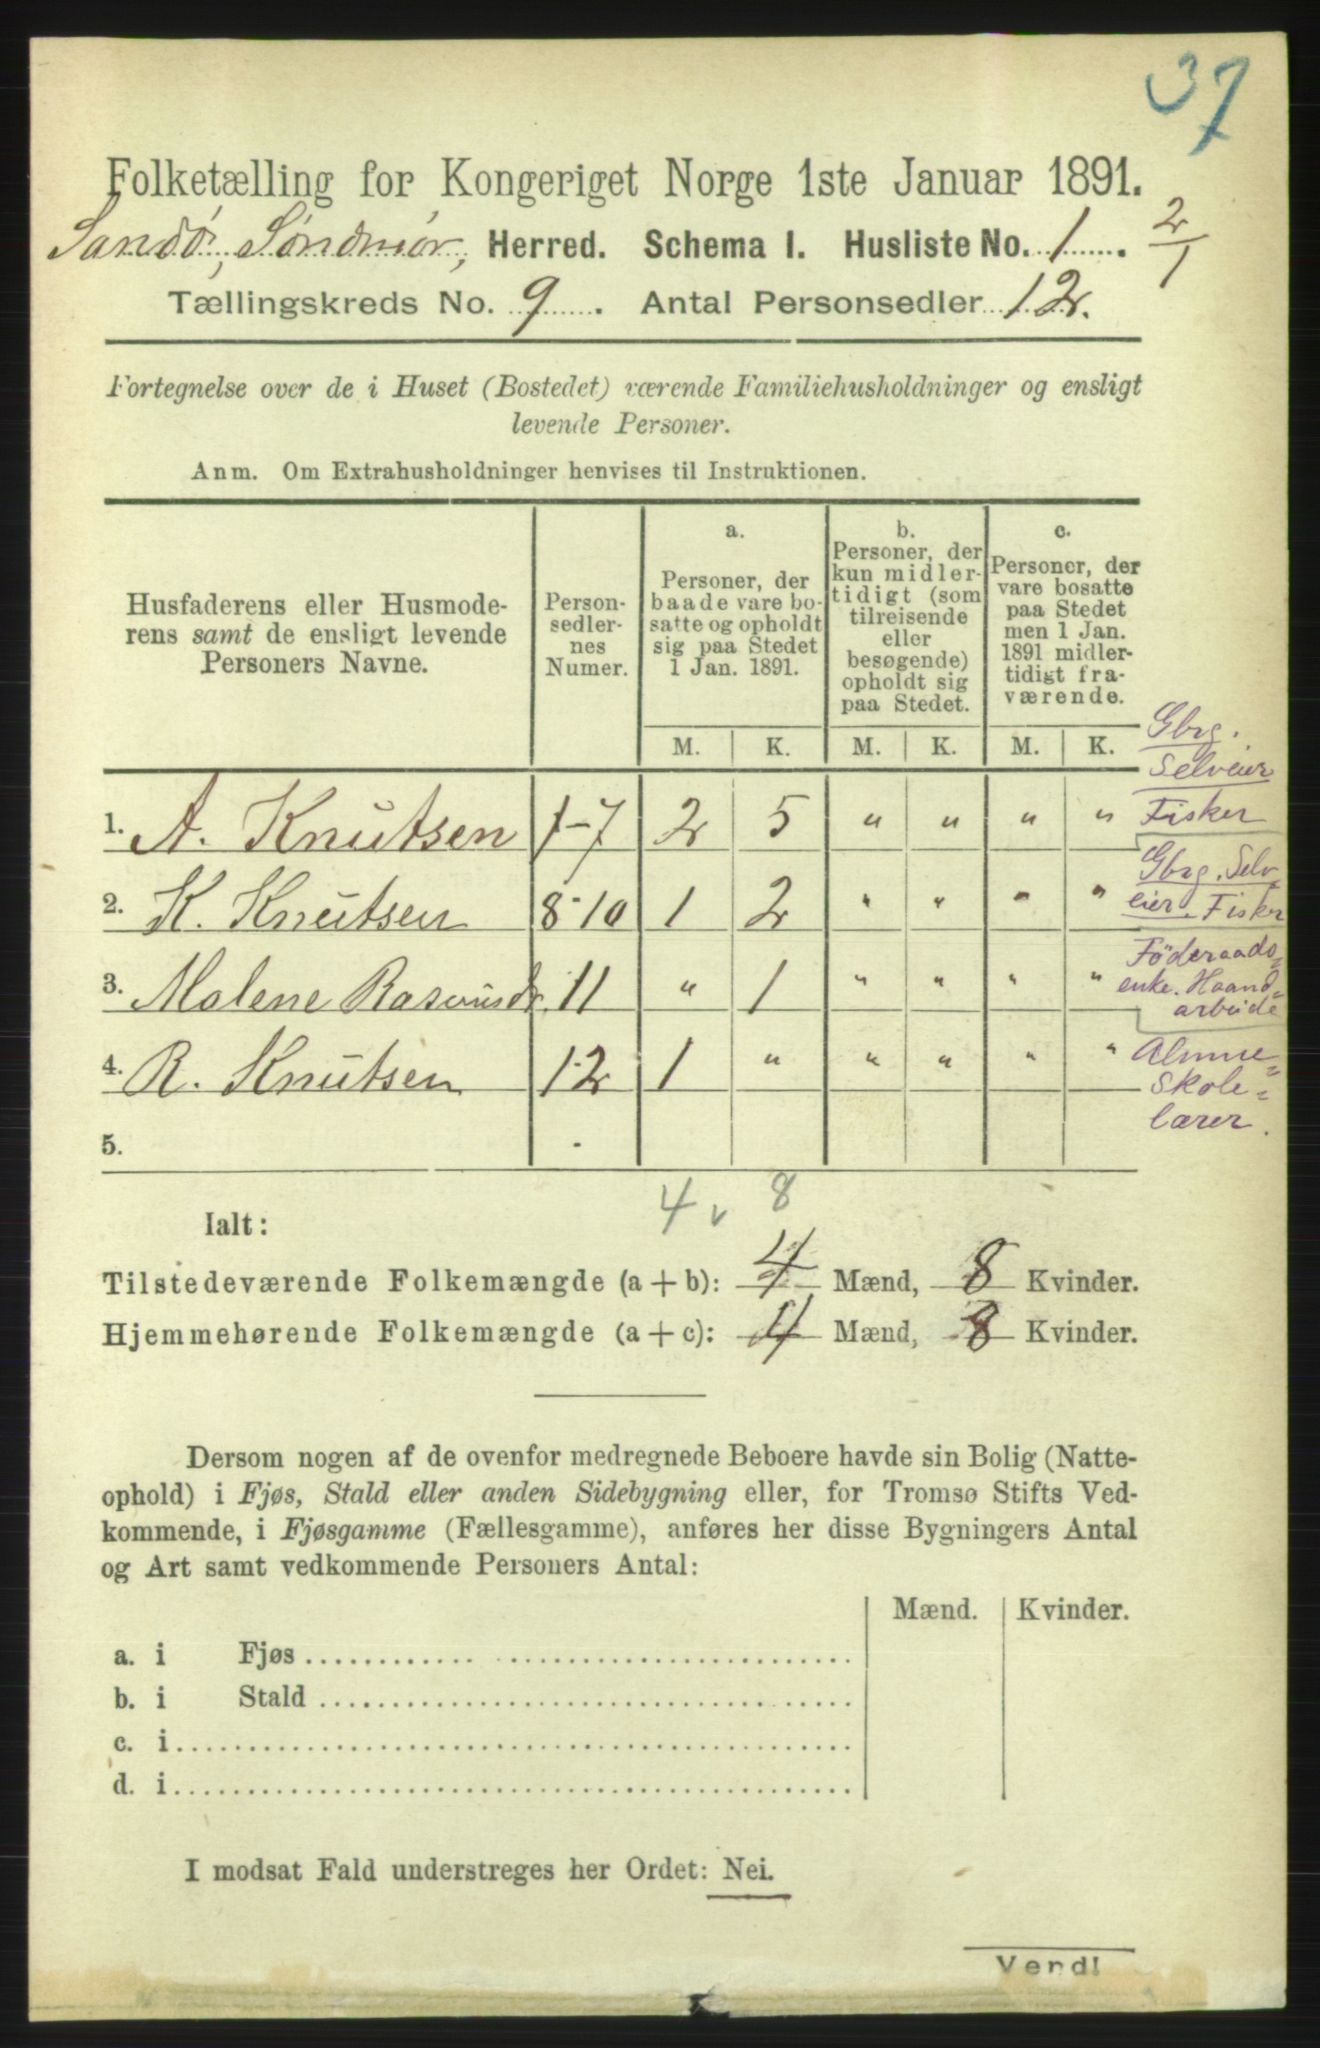 37
Folketælling for Kongeriget Norge 1ste Januar 1891.
Sandø, Søndmør, Herred. Schema I. Husliste No. 1. 2/1
Tællingskreds No. 9. Antal Personsedler 12.
Fortegnelse over de i Huset (Bostedet) værende Familiehusholdninger og ensligt
levende Personer.
Anm. Om Extrahusholdninger henvises til Instruktionen.
Husfaderens eller Husmode-
rens samt de ensligt levende
Personers Navne.
Person-
sedler-
nes
Numer.
a.
Personer, der
baade vare bo-
satte og opholdt
sig paa Stedet
1 Jan. 1891.
b.
Personer, der
kun midler-
tidigt (som
tilreisende
eller
besøgende)
opholdt sig
paa Stedet.
c.
Personer, der
vare bosatte
paa Stedet
men 1 Jan.
1891 midler-
tidigt fra-
værende.
M. K. M. K. M. K.
Gbrg.
Selveier
Fisker
1. A. Knutsen 1-7 2 5 " " " "
Gbrg. Selv-
eier. Fisker
2. K. Knutsen 8-10 1 2 " " " "
Föderaads-
enke. Haand-
arbeide
3. Malene Rasmusdr. 11 " 1 " " " "
Almue-
skole-
lærer.
4. R. Knutsen 12 1 " " " " "
5. -
4 v 8
Ialt:
Tilstedeværende Folkemængde (a + b): 4 Mænd, 8 Kvinder.
Hjemmehørende Folkemængde (a + c): 4 Mænd, 8 Kvinder.
Dersom nogen af de ovenfor medregnede Beboere havde sin Bolig (Natte-
ophold) i Fjøs, Stald eller anden Sidebygning eller, for Tromsø Stifts Ved-
kommende, i Fjøsgamme (Fællesgamme), anføres her disse Bygningers Antal
og Art samt vedkommende Personers Antal:
Mænd. Kvinder.
a. i Fjøs
b. i Stald
c. i
d. i
I modsat Fald understreges her Ordet: Nei.
Vend!